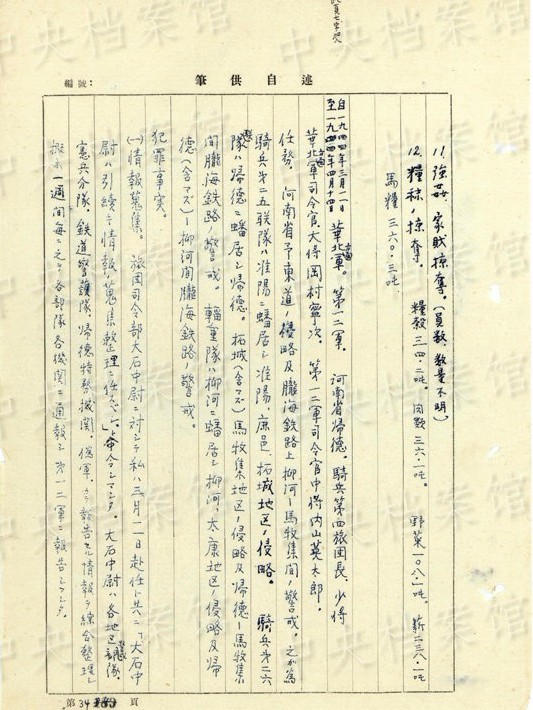 述自供筆
編號：
11. 強姦、家財掠奪。(員数、数量不明)
12. 糧秣ノ掠奪。 糧穀 三四・二吨。 肉類 三六一吨。 野菜一〇八・一吨。 薪二三八・一吨
馬糧 三六〇・三吨、
自一九四四年三月一一日 華北軍。第一二軍。 河南省帰德。騎兵第四旅団長、少将
至一九四四年四月十四日
華北軍司令官大将岡村寧次。 第一二軍司令官中将内山英太郎。
任務。 河南省予東道ノ侵略及隴海鉄路上柳河ー馬牧集間ノ警戒。之ガ為
騎兵第二五联隊ハ淮陽ニ蟠居シ淮陽、鹿邑、柘城地区ノ侵略。 騎兵第二六
联隊ハ帰德ニ蟠居シ帰德、柘城(含マズ)馬牧集地区ノ侵略及帰德ー馬牧集
間隴海鉄路ノ警戒。 輜重隊ハ柳河ニ蟠居シ柳河、太康地区ノ侵略及帰
德(含マズ)ー柳河間隴海鉄路ノ警戒。
犯罪事実。
(一)情報蒐集。 旅団司令部大石中尉ニ対シテ私ハ三月一一日赴任ト共ニ「大石中
尉ハ引続キ情報ノ蒐集整理ニ任ズベシ」ト命令シマシタ。大石中尉ハ各地区部隊、
憲兵分隊、鉄道警護隊、帰德特務機関、偽軍、カラ報告セル情報ヲ綜合整理シ
一週間毎ニ之ヲ各部隊各機関ニ通報シ第一二軍ニ報告シマシタ。
第 34 頁
中央档案馆